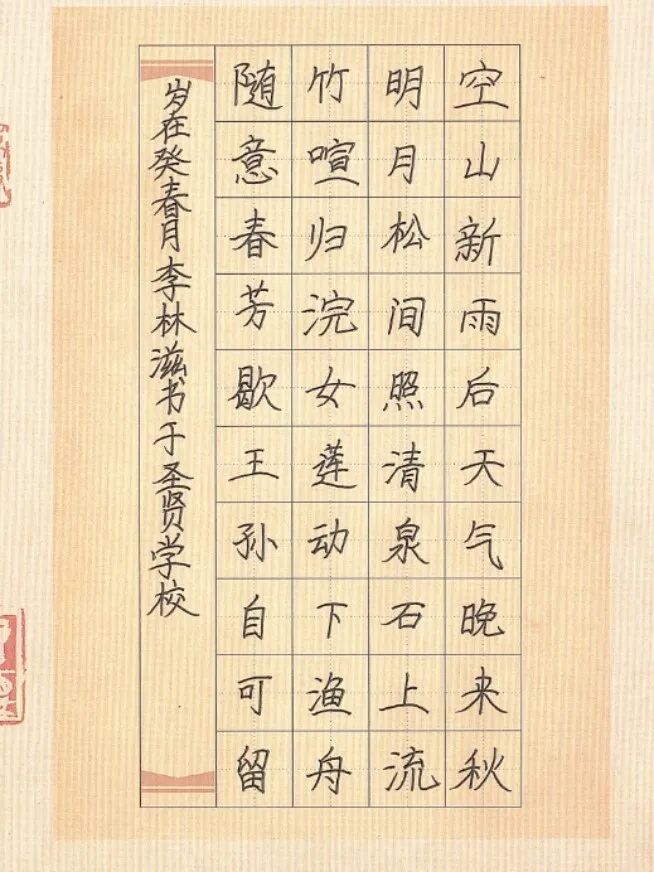 空山新雨后天气晚来秋
明月松间照清泉石上流
竹喧归浣女莲动下渔舟
随意春芳歇王孙自可留
岁在癸春月李林滋书于圣贤学校